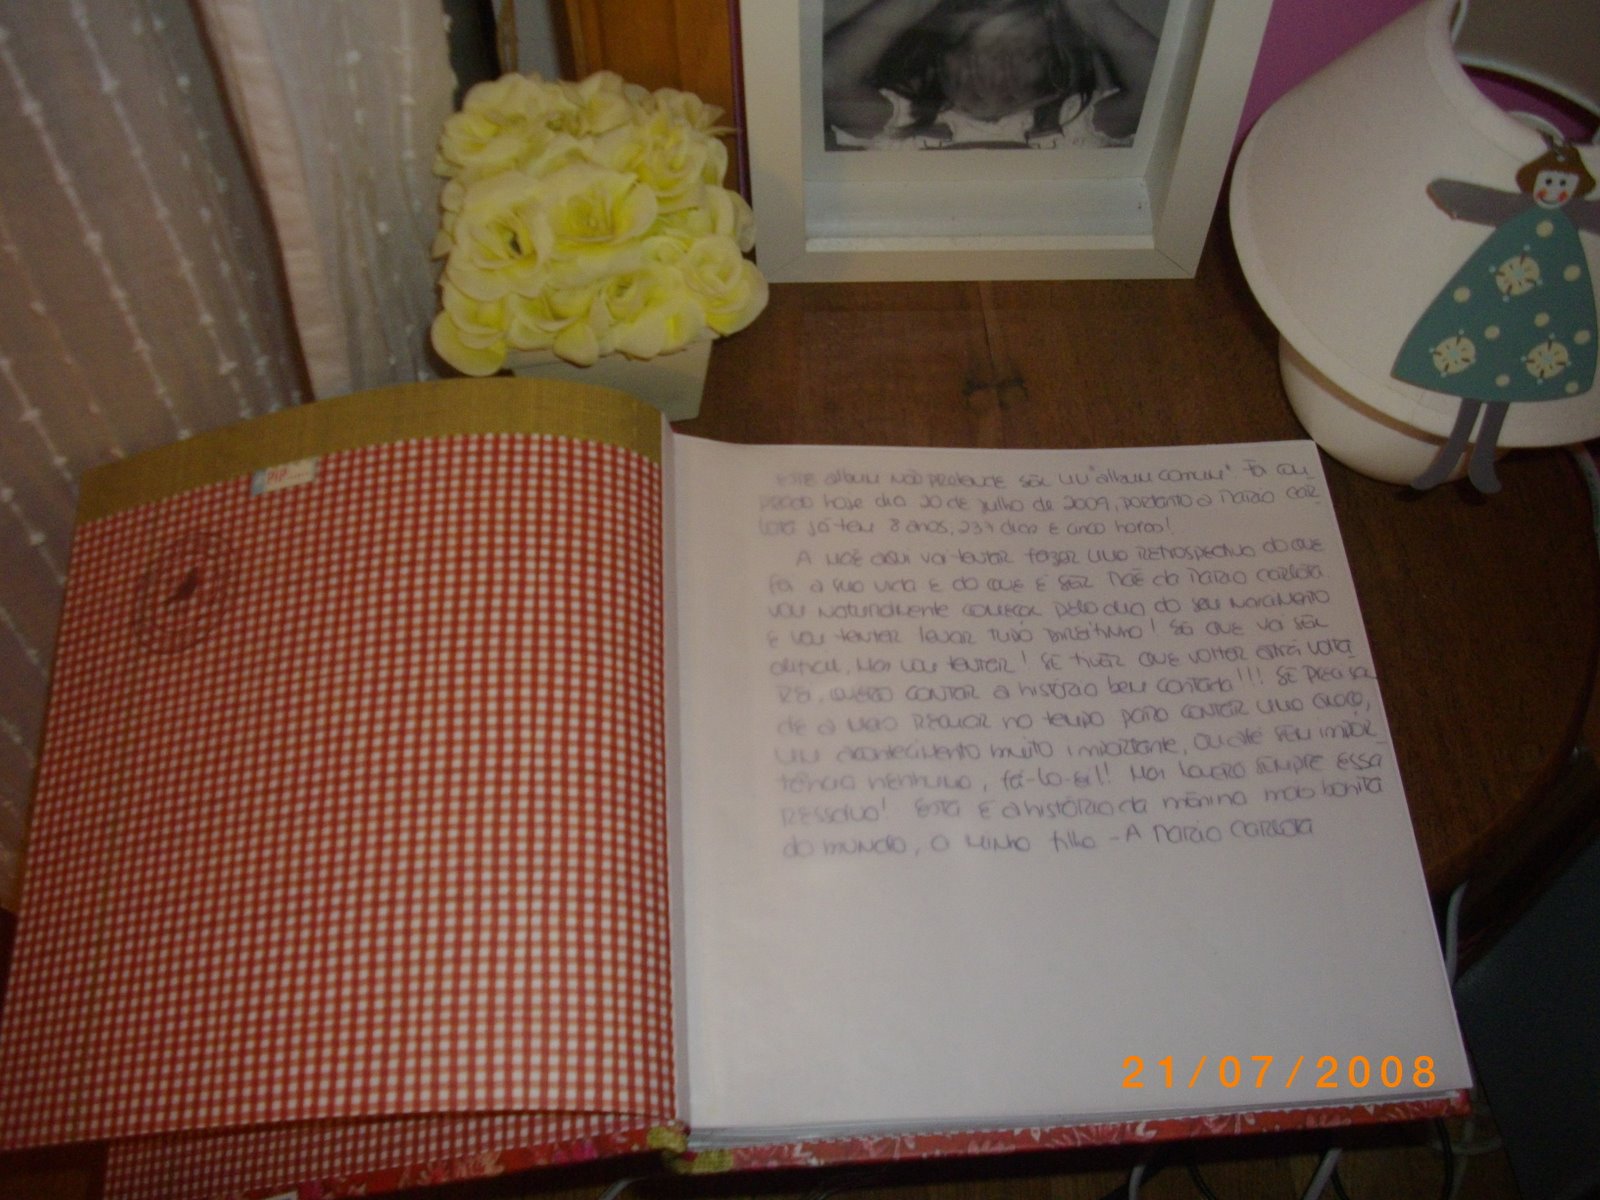 PiP
Este album não pretende ser um "album comum" Foi com
prado hoje dia 20 de julho de 2009, portanto a Maria Car
lota já tem 8 anos, 237 dias e cinco horas!
A mãe aqui vai tentar fazer uma retrospectiva do que
foi a sua vida e do que é ser mãe da Maria Carlota.
Vou naturalmente começar pelo dia do seu nascimento
e vou tentar levar tudo direitinho! Só que vai ser
difícil, mas vou tentar! Se tiver que voltar atrás volta
rei, quero contar a história bem contada!!! Se precisar
de a meio recuar no tempo para contar uma graça,
um acontecimento muito importante, ou até sem impor
tância nenhuma, fá-lo-ei! Mas levarei sempre essa
ressalva! Esta é a história da menina mais bonita
do mundo, a minha filha - A Maria Carlota
21/07/2008